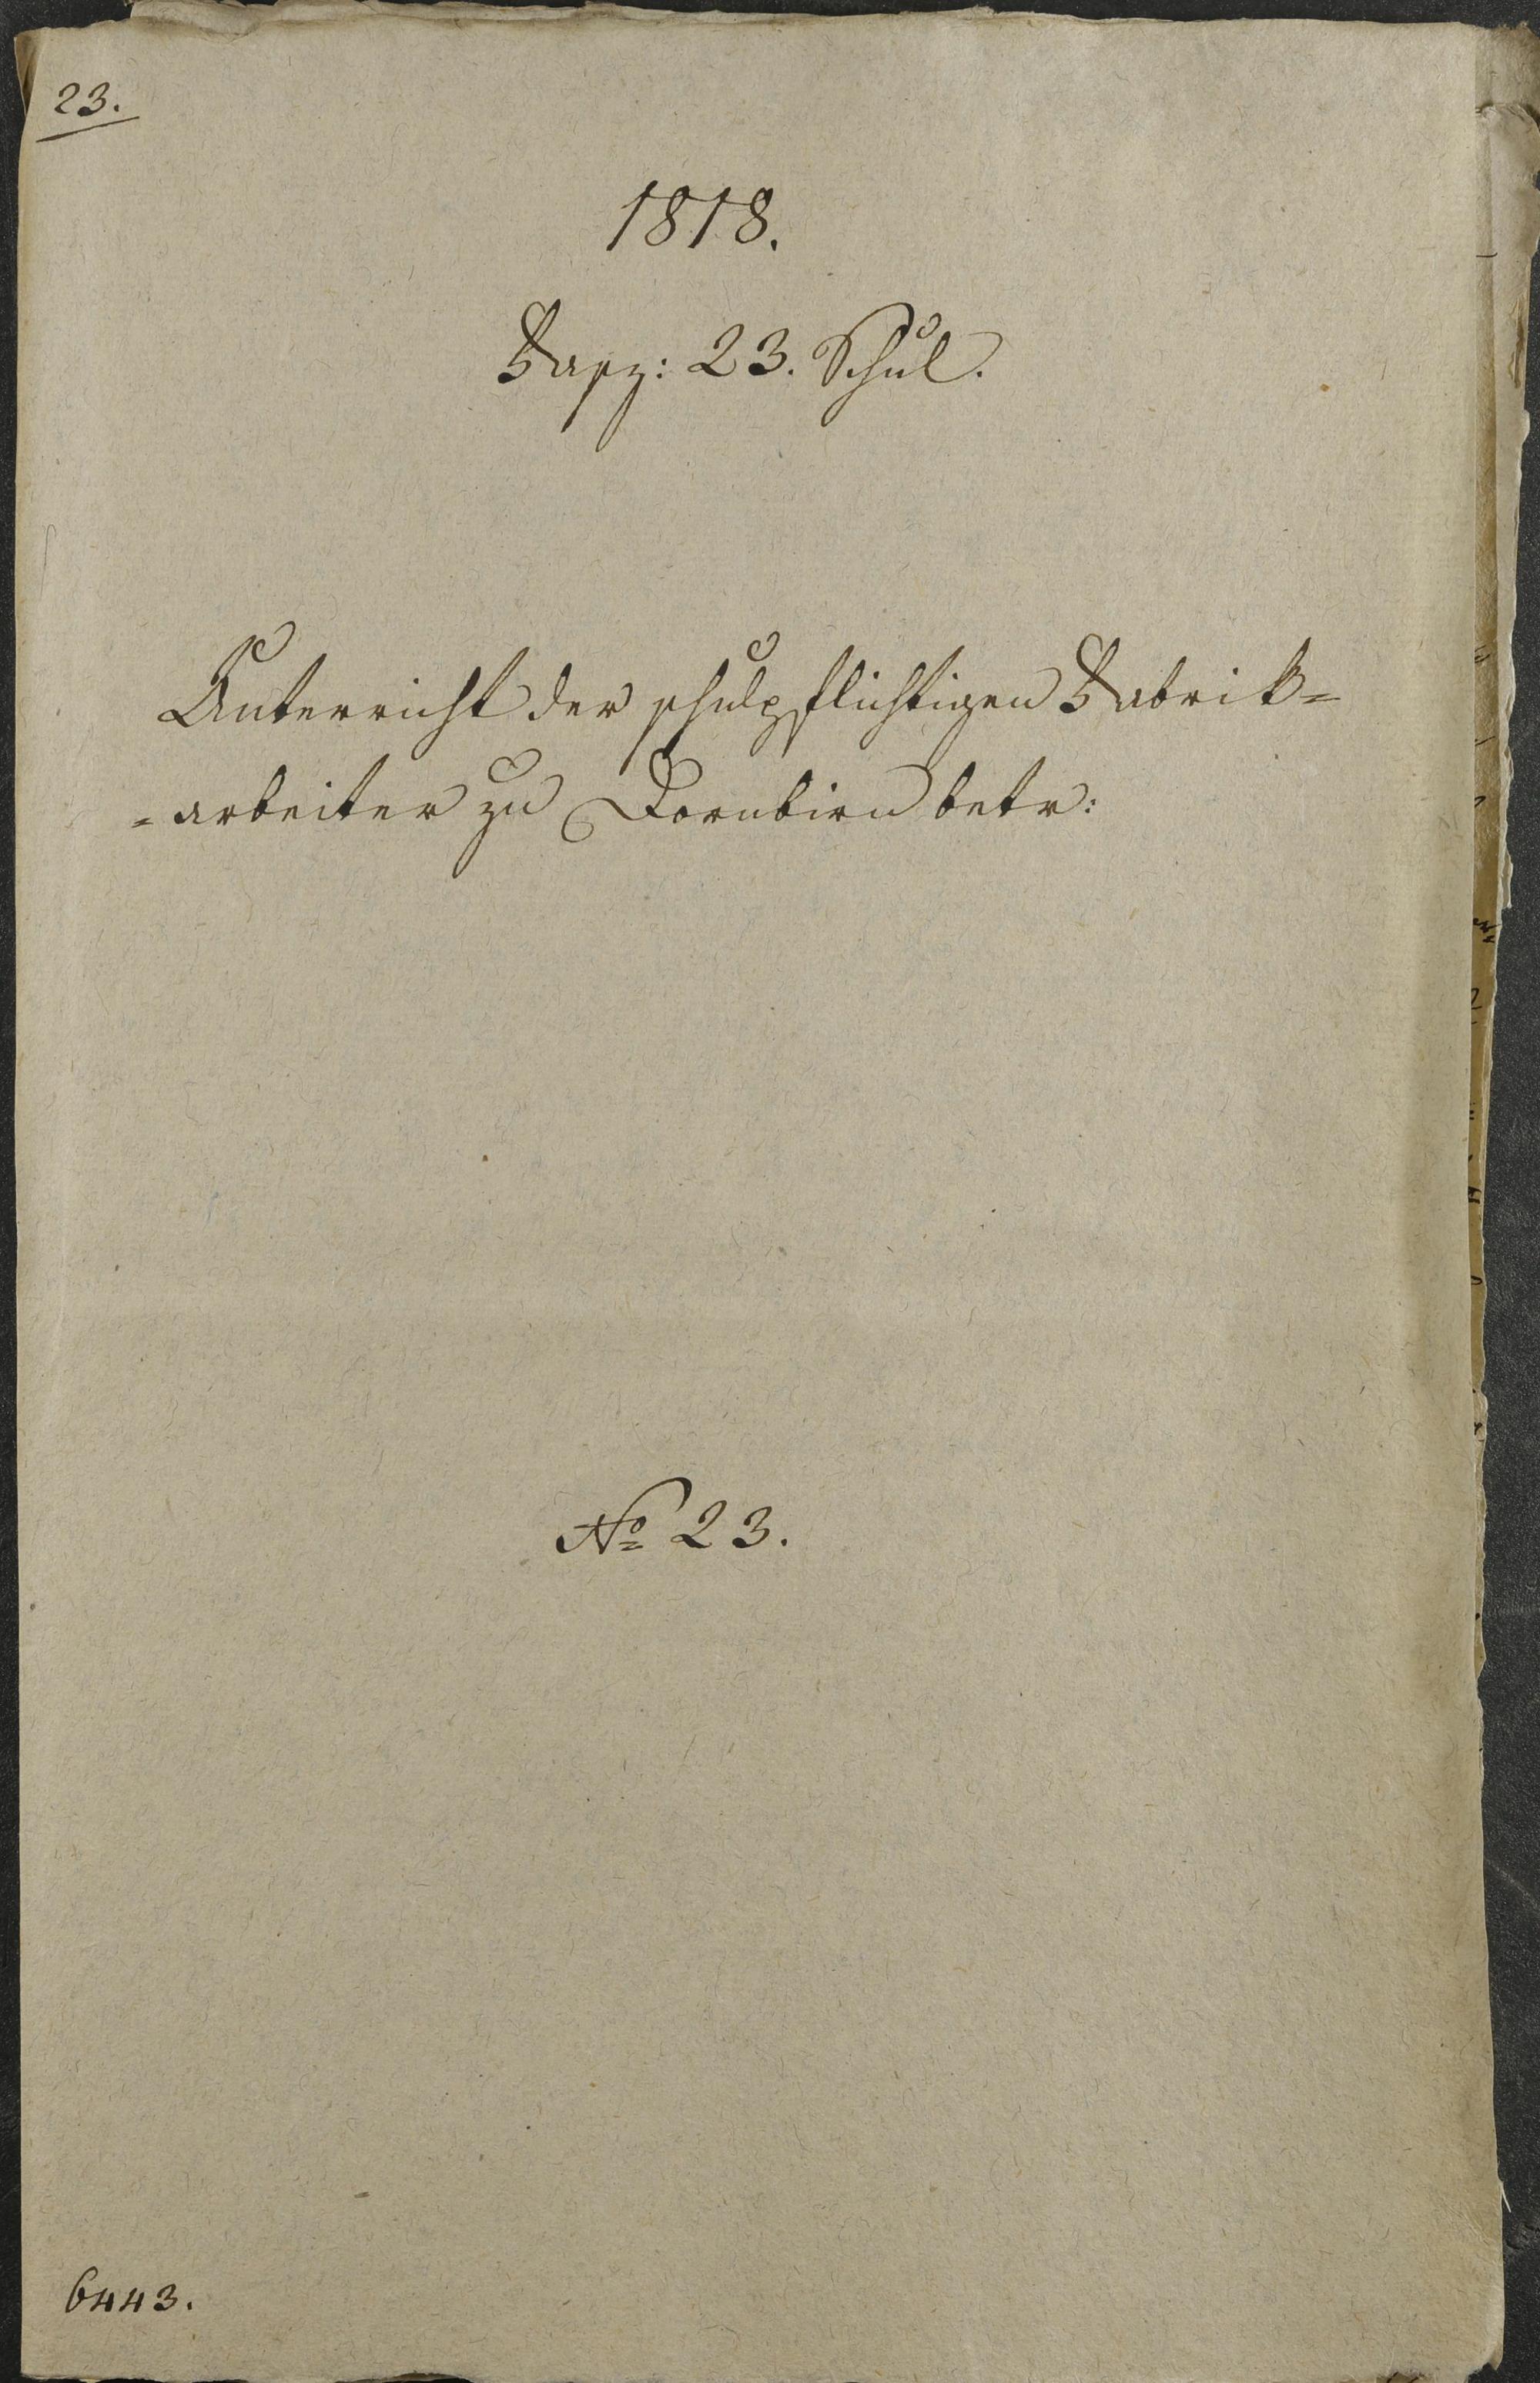 23.
1818.
Fasz: 23. Schul.
Unterricht der schulpflichtigen Fabrik=
=arbeiter zu Dornbirn betr:
No 23.
6443.